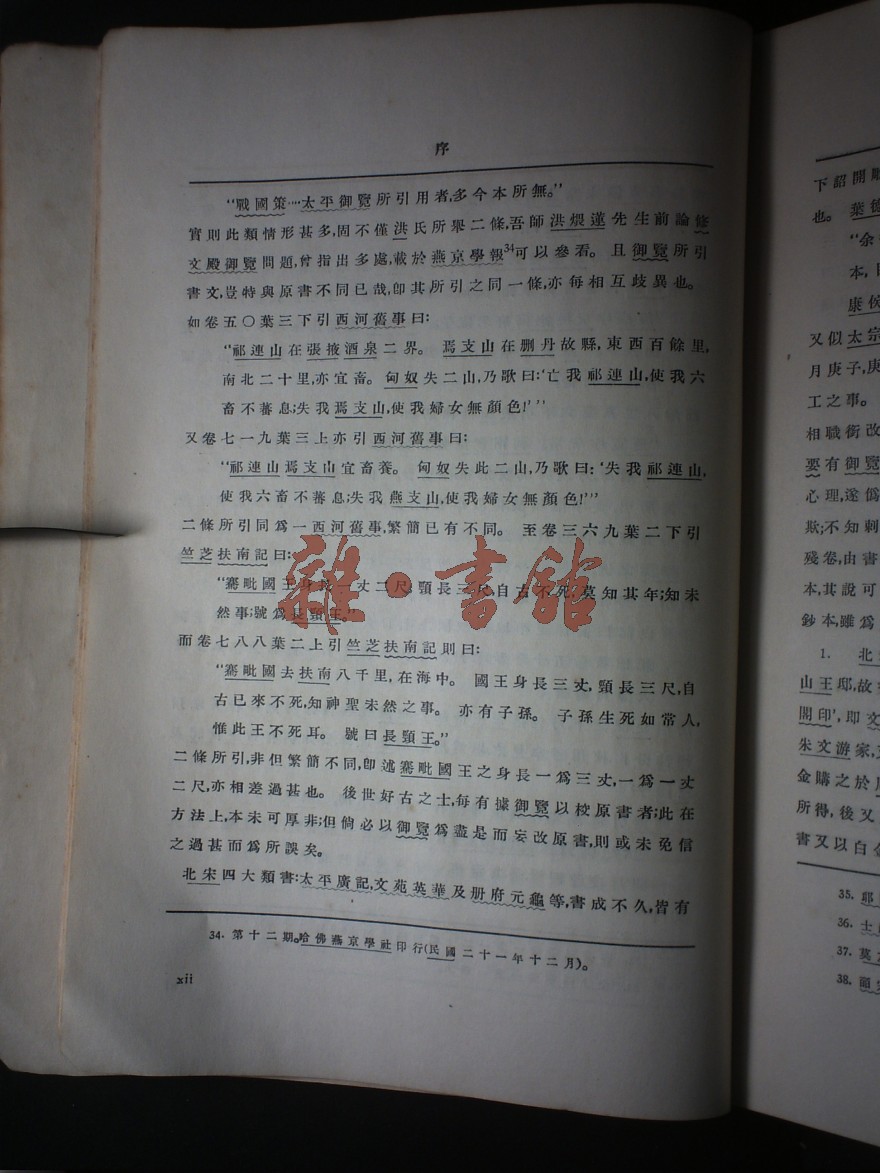 序
“戰國策····太平御覽所引用者,多今本所無。”
實則此類情形甚多,固不僅洪氏所舉二條,吾師洪煨蓮先生前論修
文殿御覽問題,曾指出多處,載於燕京學報34可以參看。且御覽所引
書文,豈特與原書不同已哉,卽其所引之同一條,亦每相互歧異也。
如卷五〇葉三下引西河舊事曰:
“祁連山在張掖酒泉二界。焉支山在删丹故縣,東西百餘里,
南北二十里,亦宜畜。匈奴失二山,乃歌曰:‘亡我祁連山,使我六
畜不蕃息;失我焉支山,使我婦女無顏色!’”
又卷七一九葉三上亦引西河舊事曰:
“祁連山焉支山宜畜養。匈奴失此二山,乃歌曰:‘失我祁連山,
使我六畜不蕃息;失我燕支山,使我婦女無顏色!’”
二條所引同爲一西河舊事,繁簡已有不同。至卷三六九葉二下引
竺芝扶南記曰:
“鶱毗國王身長一丈二尺,頸長三尺,自古不死,莫知其年;知未
然事;號爲長頸王。”
而卷七八八葉二上引竺芝扶南記則曰:
“鶱毗國去扶南八千里,在海中。國王身長三丈,頸長三尺,自
古已來不死,知神聖未然之事。亦有子孫。子孫生死如常人,
惟此王不死耳。號曰長頸王。”
二條所引,非但繁簡不同,卽述鶱毗國王之身長一爲三丈,一爲一丈
二尺,亦相差過甚也。後世好古之士,每有據御覽以校原書者;此在
方法上,本未可厚非;但倘必以御覽爲盡是而妄改原書,則或未免信
之過甚而爲所誤矣。
北宋四大類書:太平廣記,文苑英華及册府元龜等,書成不久,皆有
34. 第十二期。哈佛燕京學社印行(民國二十一年十二月)。
xii
雜·書館
下詔開
也。葉德
“余
本,
康侯
又似太宗
月庚子,庚
工之事。
相職銜改
要有御覽
心理,遂僞
欺;不知剌
殘卷,由書
本,其說可
鈔本,雖爲
1. 北
山王邸,故
閣印’,卽文
朱文游家,
金購之於
所得,後又
書又以白金
35.
36. 士
37. 莫
38.